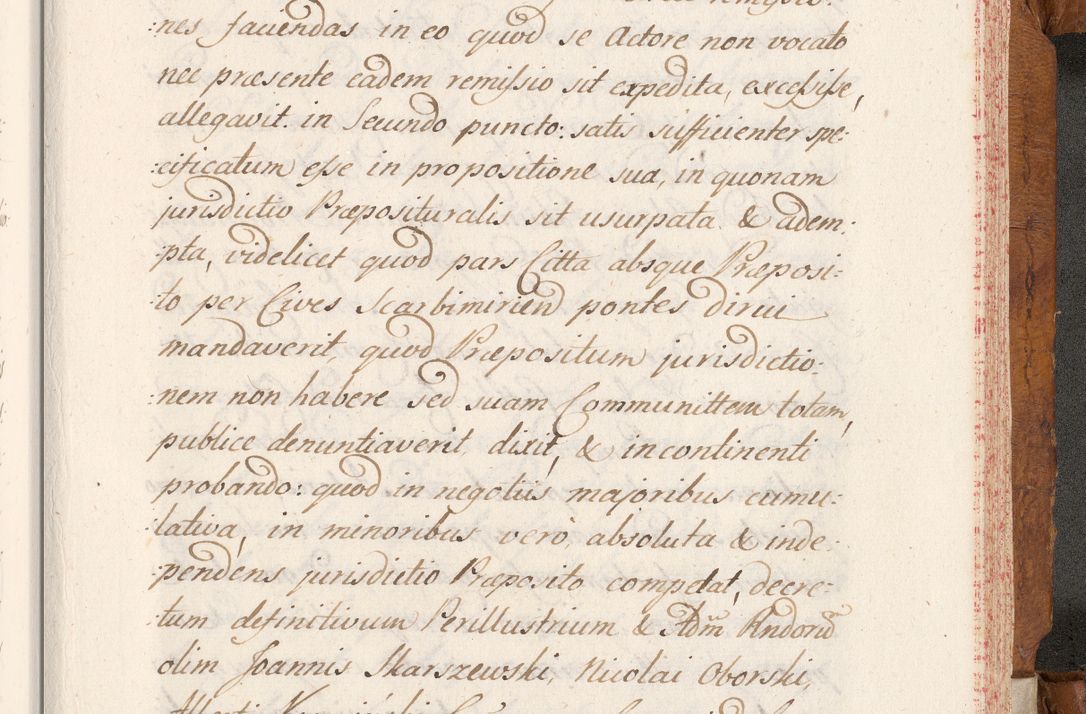 :nes favendas in eo quod se Actore non vocato
nec præsente eadem remissio sit expedita, excessisse,
allegavit. in Secundo puncto: satis sufficienter spe:
:cificatum esse in propositione sua, in quonam
jurisdictio Præposituralis sit usurpata & adem:
:pta, videlicet quod pars Citta absque Præposi:
:to per Cives Scarbimirien pontes dirui
mandaverit, quod Præpositum jurisdictio:
:nem non habere sed suam Communittem totam,
publice denuntiaverit, dixit, & in continenti
probando: quod in negotiis majoribus cumu:
:lativa, in minoribus verò, absoluta & inde:
:pendens jurisdictio Præposito competat, decre:
:tum definitivum Perillustrium & Adm Rndorũ
olim Joannis Skarszewski, Nicolai Oborski,